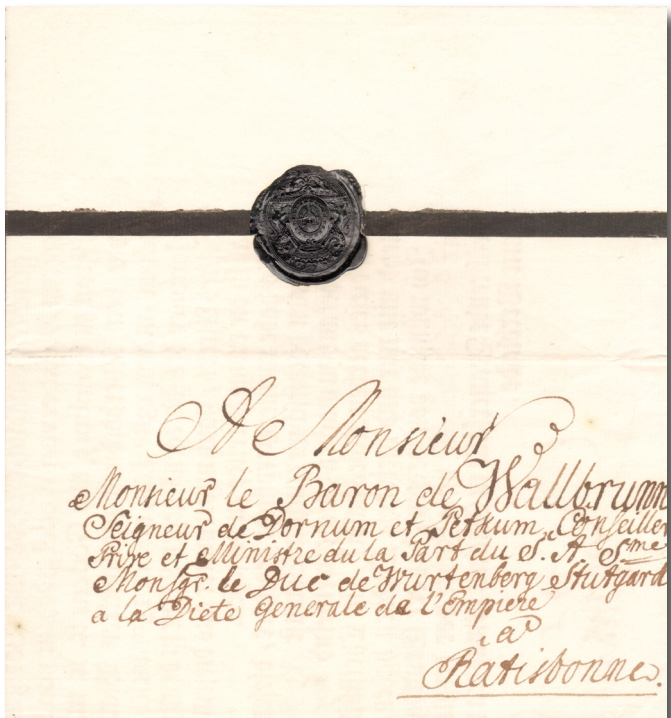 A Monsieur
Monsieur le Baron de Wallbrunn
Seigneur de Dornum et Petkum, Conseiller
Prive et Ministre du la Part du S. A. Sme
Monsgr. le Duc de Wurtenberg Stutgard
a la Diete Generale de l'Empiere
a
Ratisbonne.